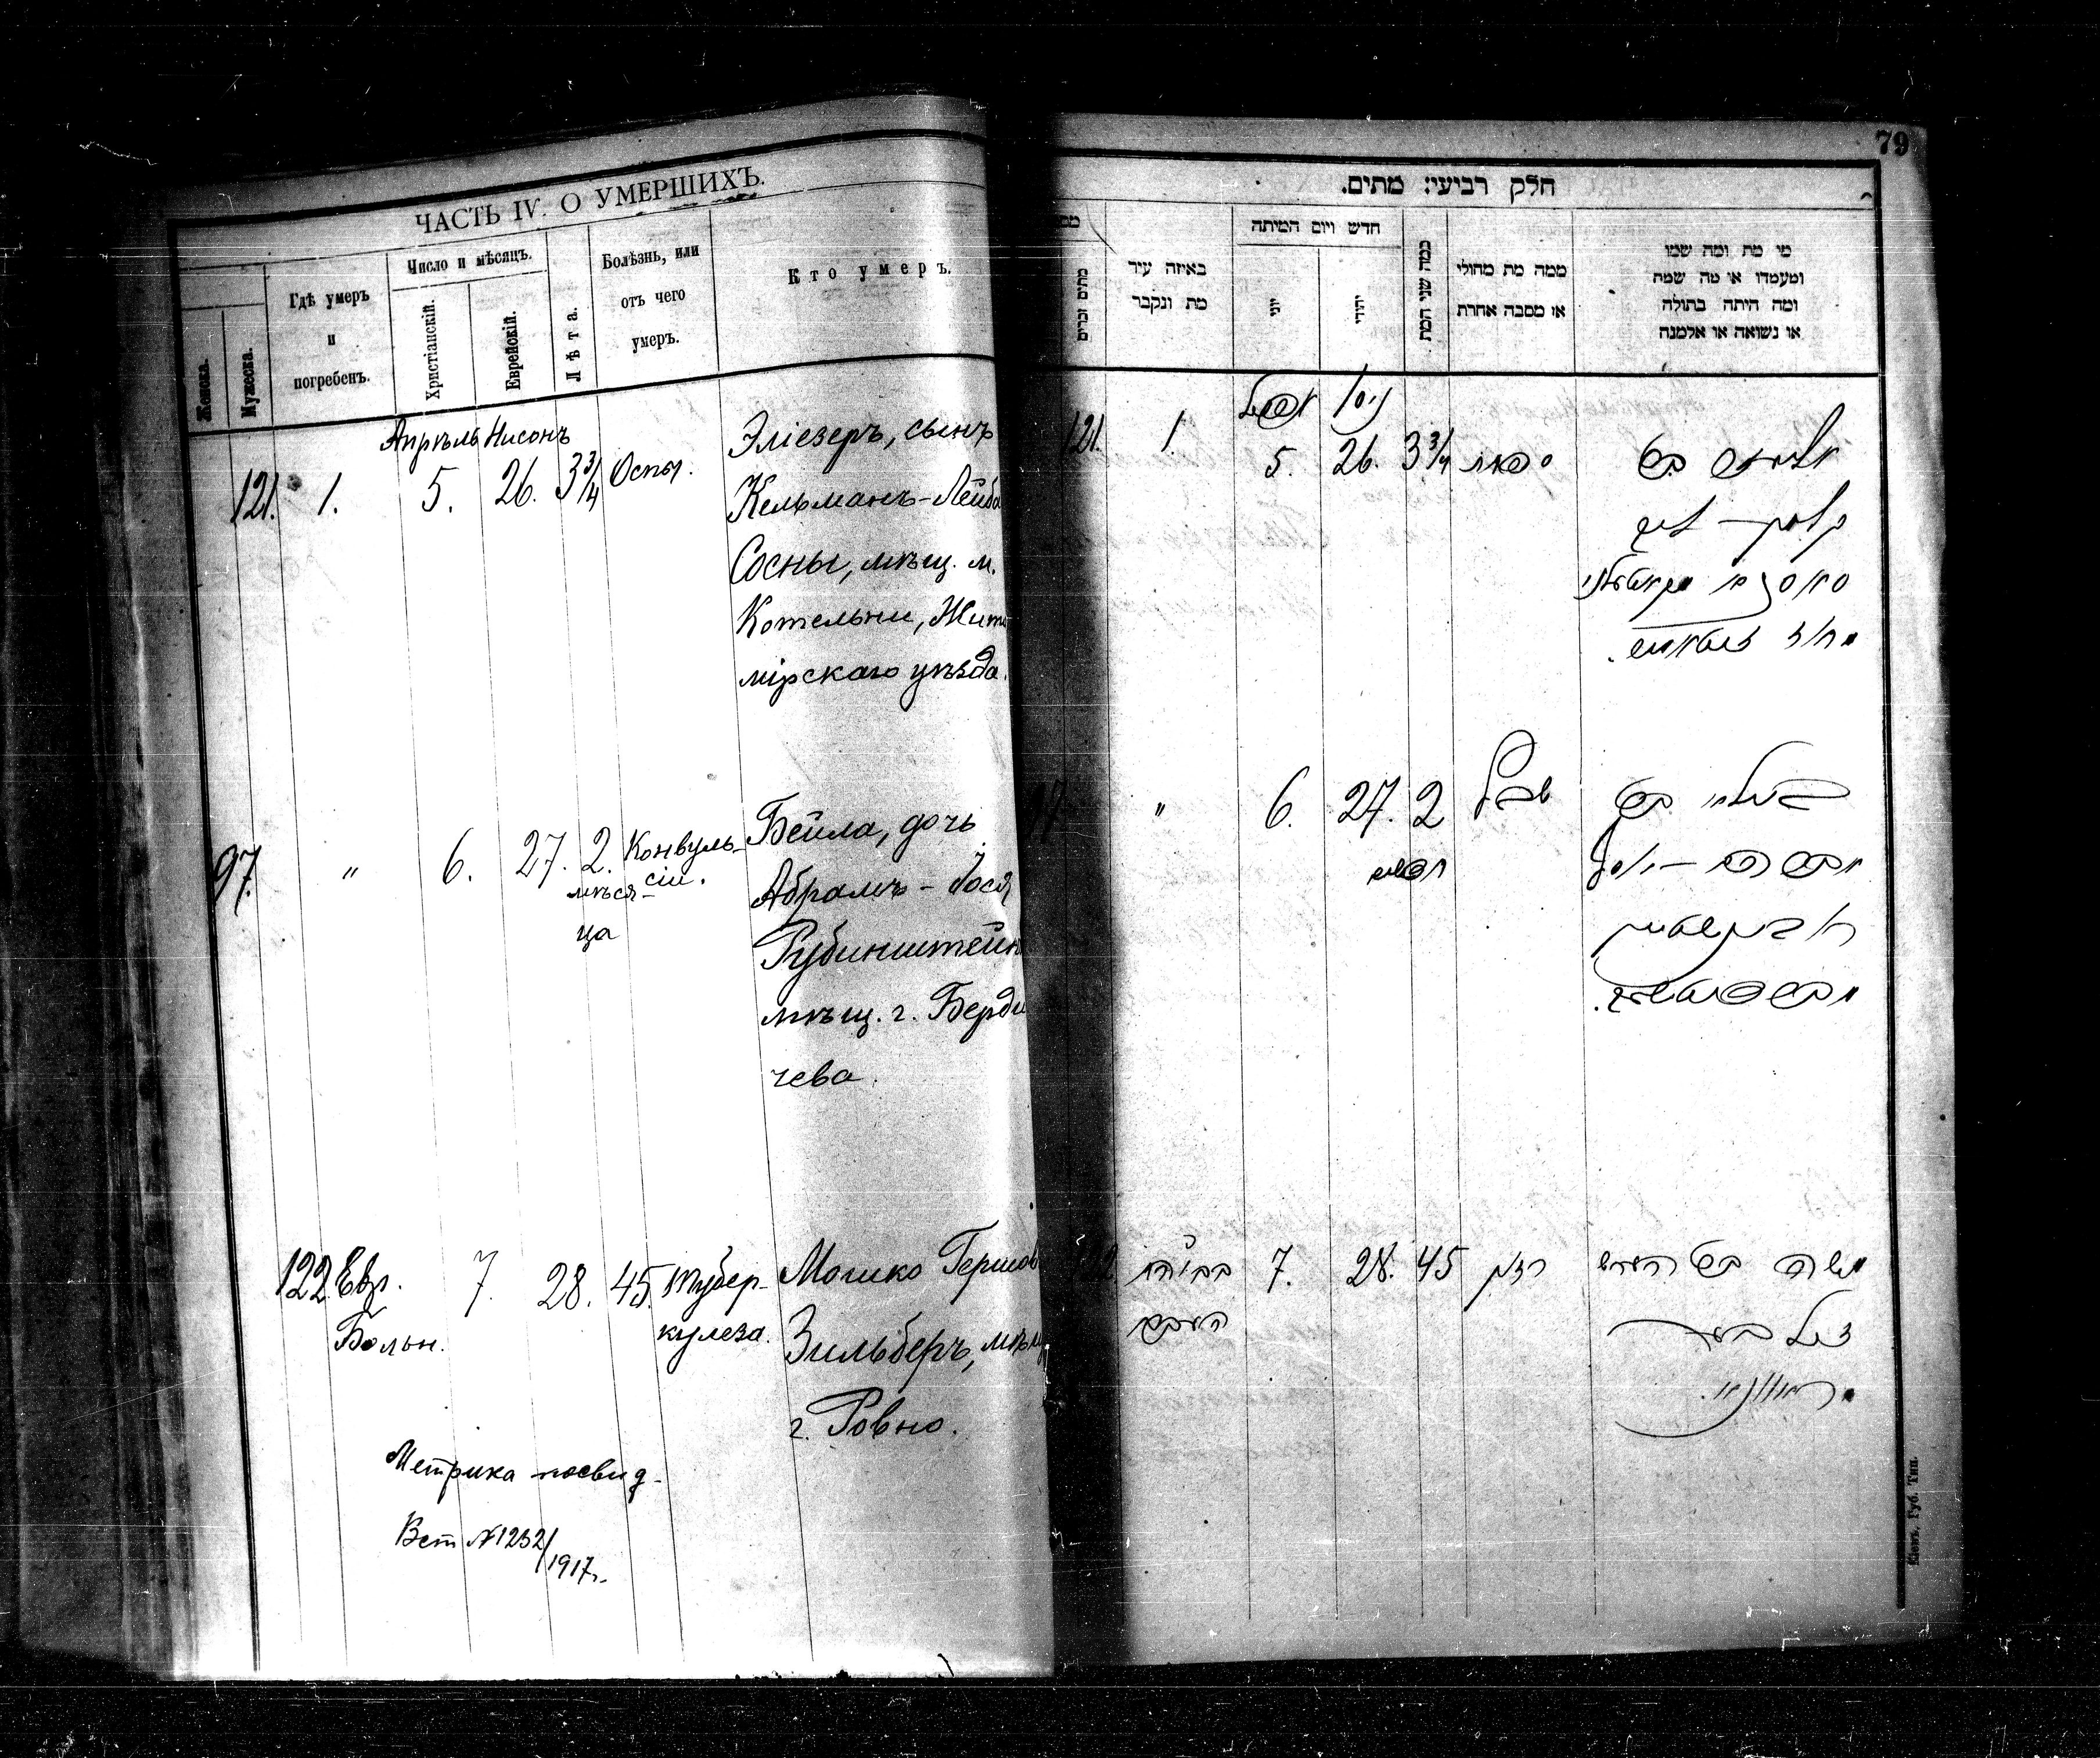 ЧАСТЬ IV. О УМЕРШИХЪ.
Женска.
Мужеска.
Гдѣ умеръ
и
погребенъ.
Число и мѣсяцъ.
Христіанскій.
Еврейскій.
Лѣта.
Болѣзнь, или
отъ чего
умеръ.
Кто умеръ.
Апрѣль Нисонъ
121. 1. 5. 26. 3 3/4 Оспы. Эліезеръ, сынъ
Кельманъ-Лейба
Сосны, мѣщ. м.
Котельни, Жито
мірскаго уѣзда.
97. " 6. 27. 2. Конвуль- Бейла, дочь
мѣся- сіи. Абрамъ-Іося
ца Рубинштейнъ
мѣщ. г. Берди
чева.
122 Евр. 7. 28. 45. Тубер- Мошко Гершов
Больн. кулеза. Зильберъ, мѣщ
г. Ровно.
Метрика посвид-
Вст №1232/1917 г.
79
חלק רביעי: מתים.
מתים זכרים
באיזה עיר
מת ונקבר
חדש ויום המיתה
יוני
יהודי
כמה שני המת
ממה מת מחולי
או מסבה אחרת
מי מת ומה שמו
ומעמדו או מה שמה
ומה היתה בתולה
או נשואה או אלמנה
אפריל ניסן
121. 1. 5. 26. 3 3/4
קלמן-ליב
" 6. 27. 2
חדשים
רובינשטיין
122 7. 28. 45 משה
זילבער